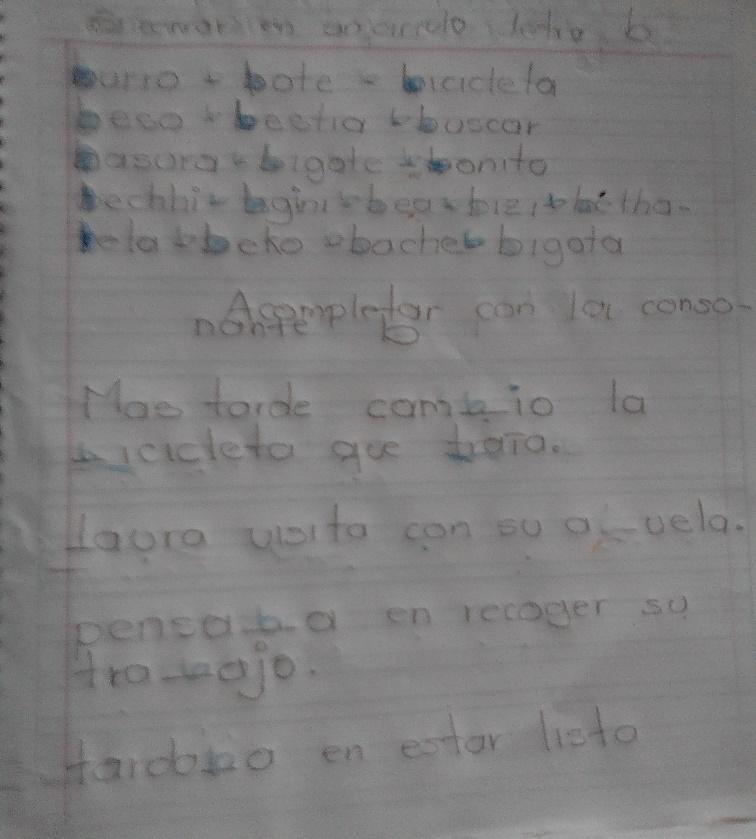 en un circulo letra b
burro - bote - bicicleta
beso - bestia - buscar
basura - bigote - bonito
bechhi - bgini - bea - bizi, betha-
bela - beko - bache - bigota
Acompletar con la conso-
nante b
Mas tarde cambio la
bicicleta que traia.
Laura visita con su a_uela.
pensaba en recoger su
tra_ajo.
tardaba en estar listo